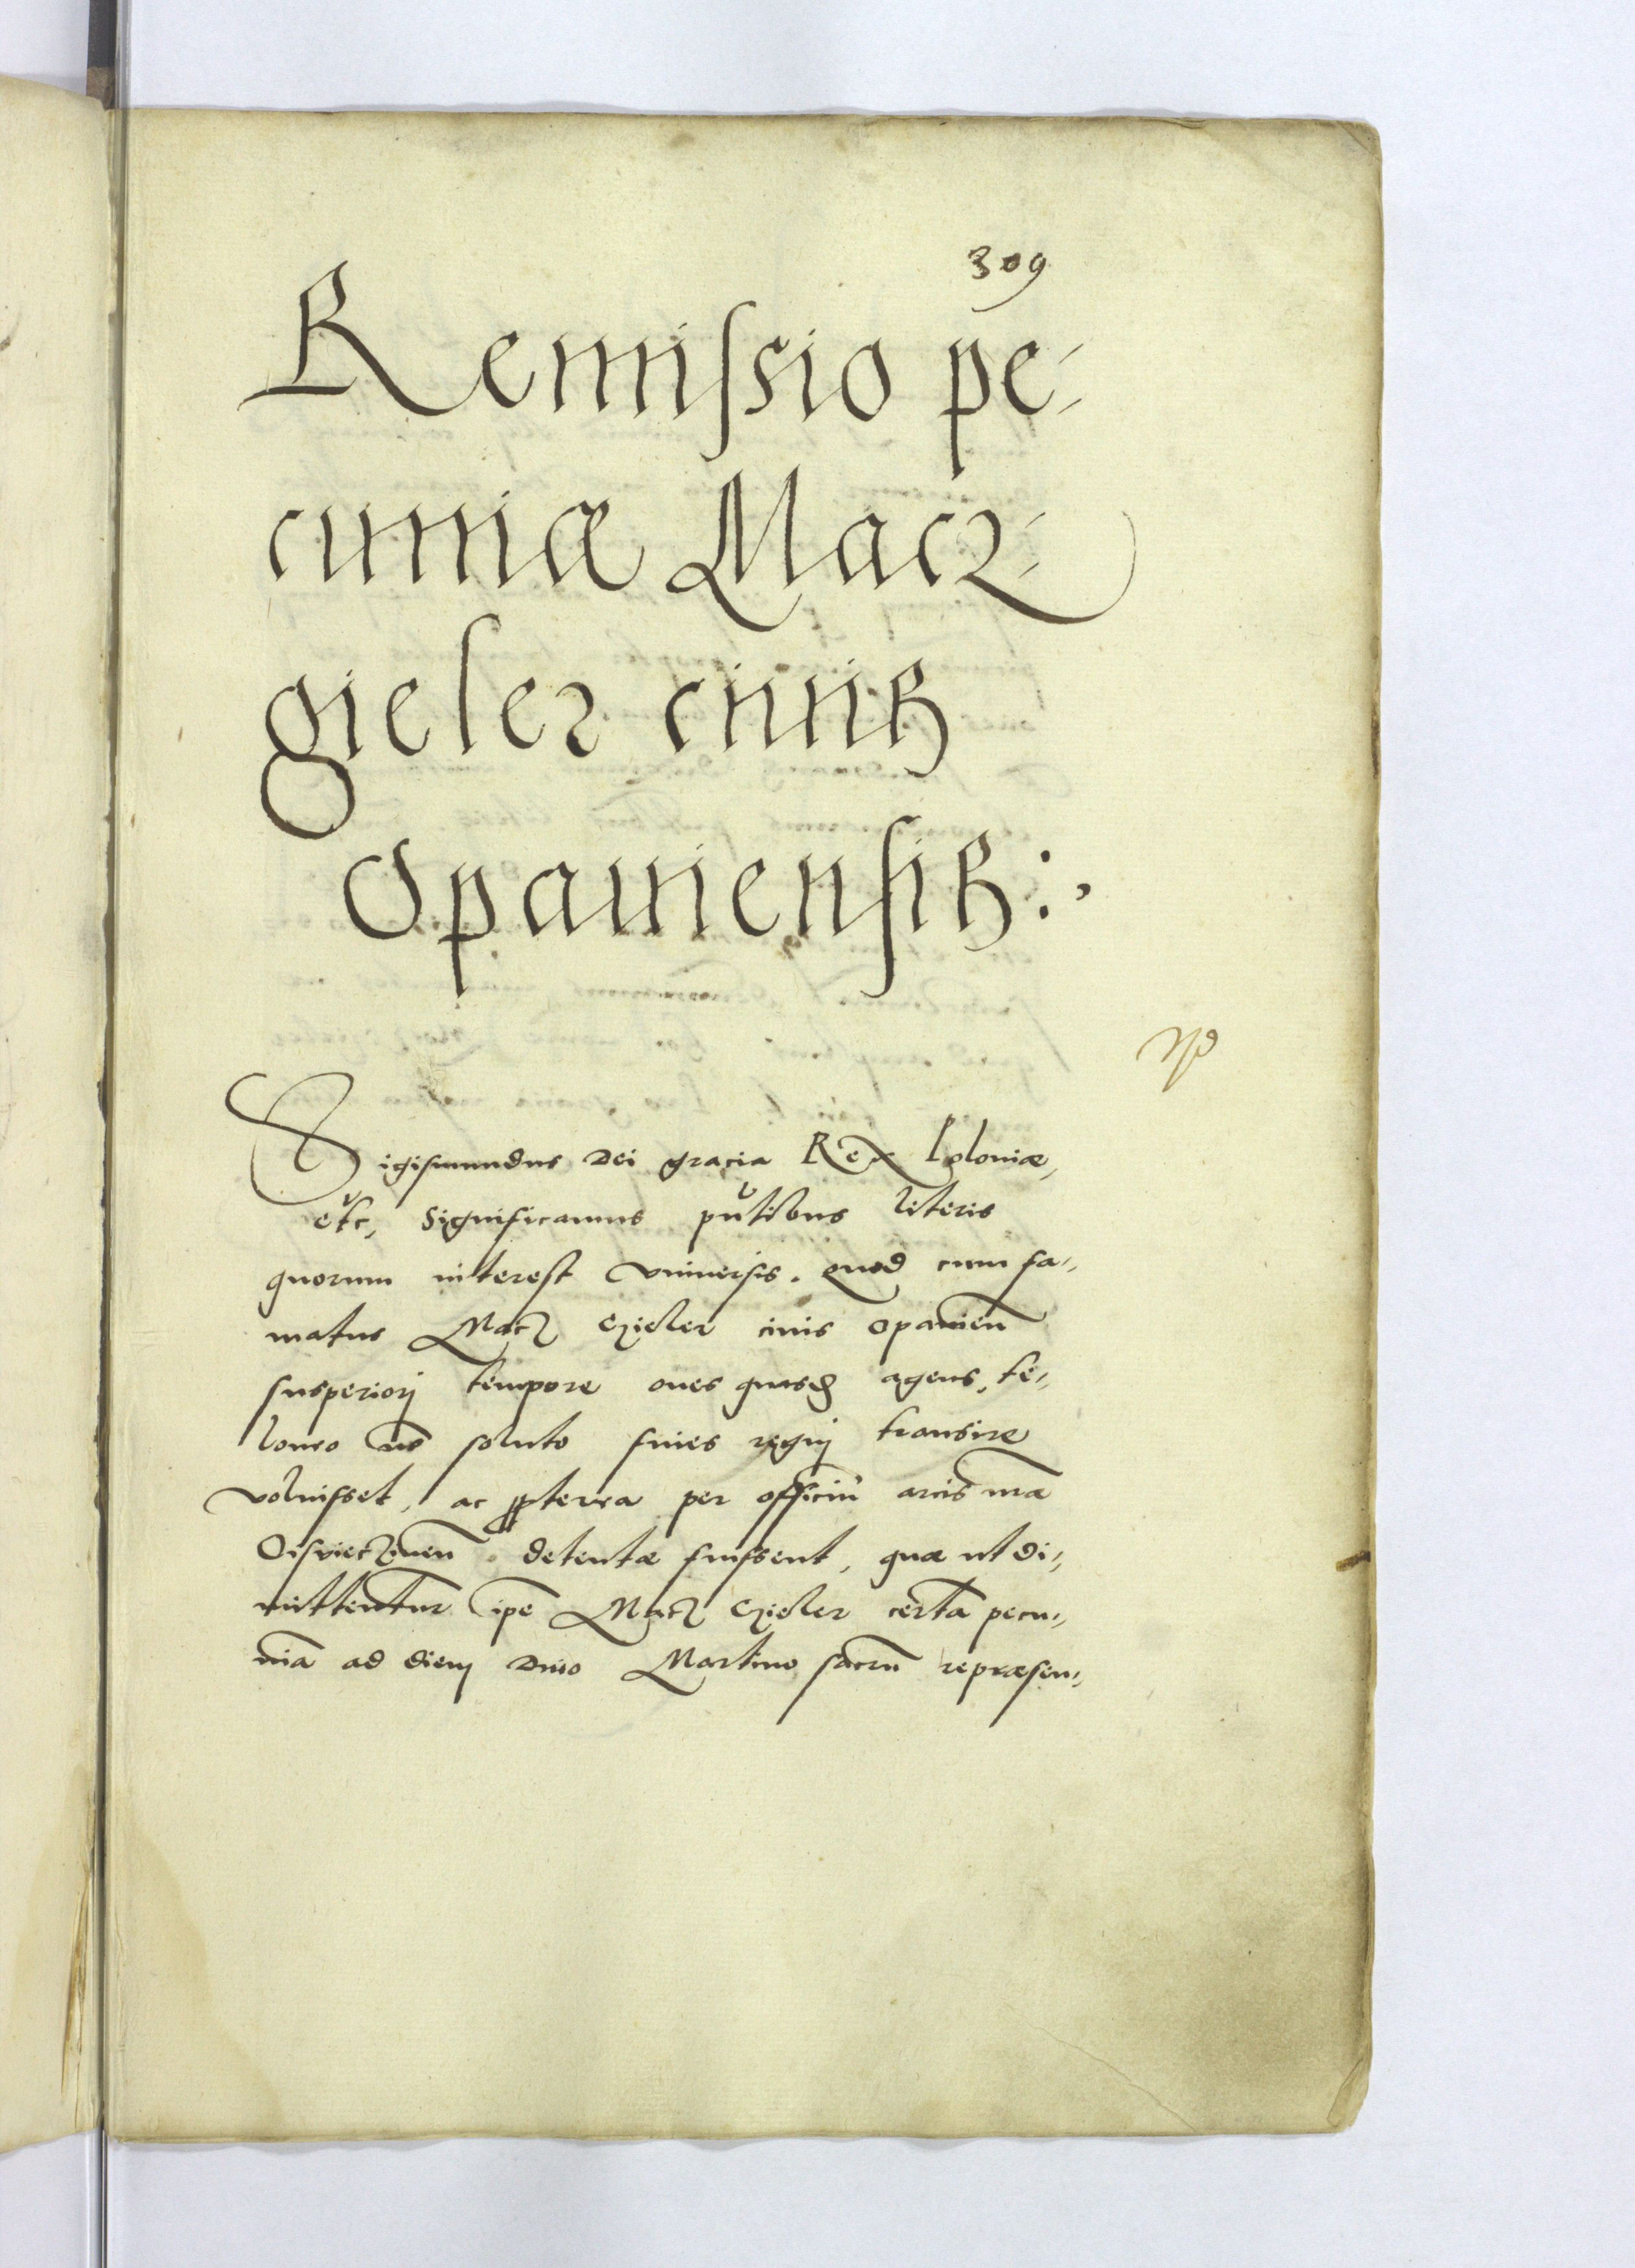 309
Remissio pe-
cuniæ Macz
gieler ciuis
Opauiensis:,
Sigismundus Dei gracia Rex Poloniæ,
etc, Significamus pñtibus literis
quorum interest vniuersis. Quod cum fa-
matus Macz Czieler ciuis Opauień
susperiorj tempore oues quasdã agens, te-
loneo nõ soluto fines regnj transire
voluisset, ac ppterea per officiũ arcis nrã
Osviecżimeñ detentæ fuissent, quæ ut di-
mittentur ipe Macz Czieler certã pecu-
niã ad diem Diuo Martino sacrũ repræsen-